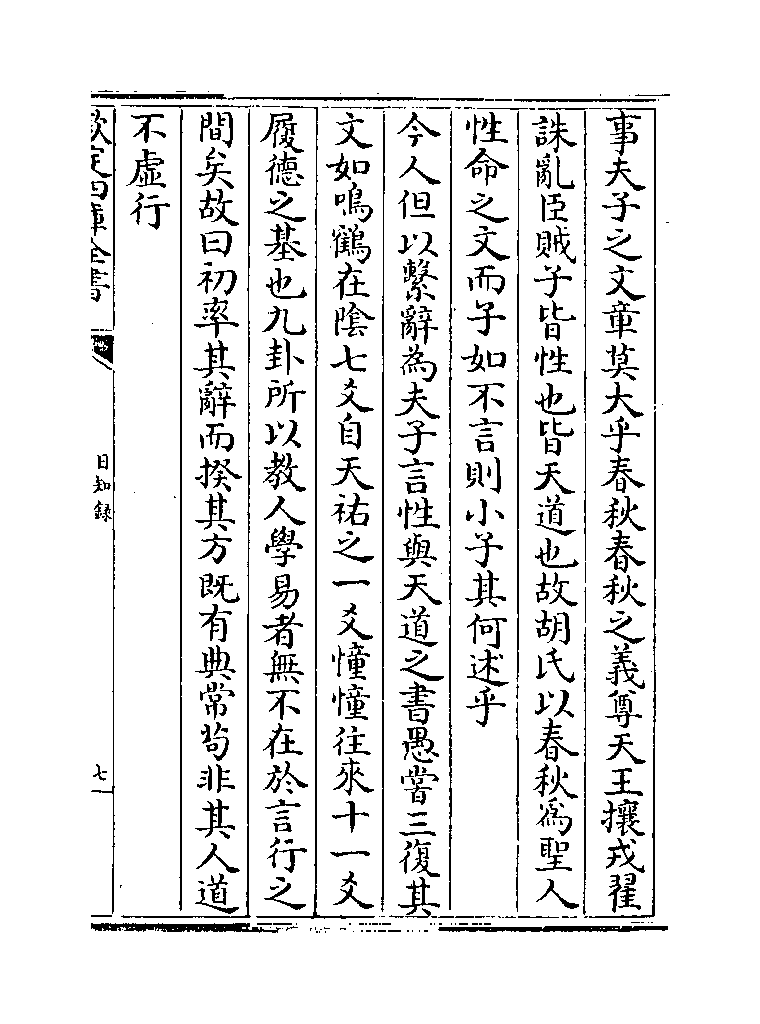 事夫子之文章莫大乎春秋春秋之義尊天王攘戎翟
誅亂臣賊子皆性也皆天道也故胡氏以春秋為聖人
性命之文而子如不言則小子其何述乎
今人但以繫辭為夫子言性與天道之書愚嘗三復其
文如鳴鶴在陰七爻自天祐之一爻憧憧往來十一爻
履德之基也九卦所以教人學易者無不在於言行之
間矣故曰初率其辭而揆其方既有典常茍非其人道
不虛行
欽定四庫全書
日知錄
七